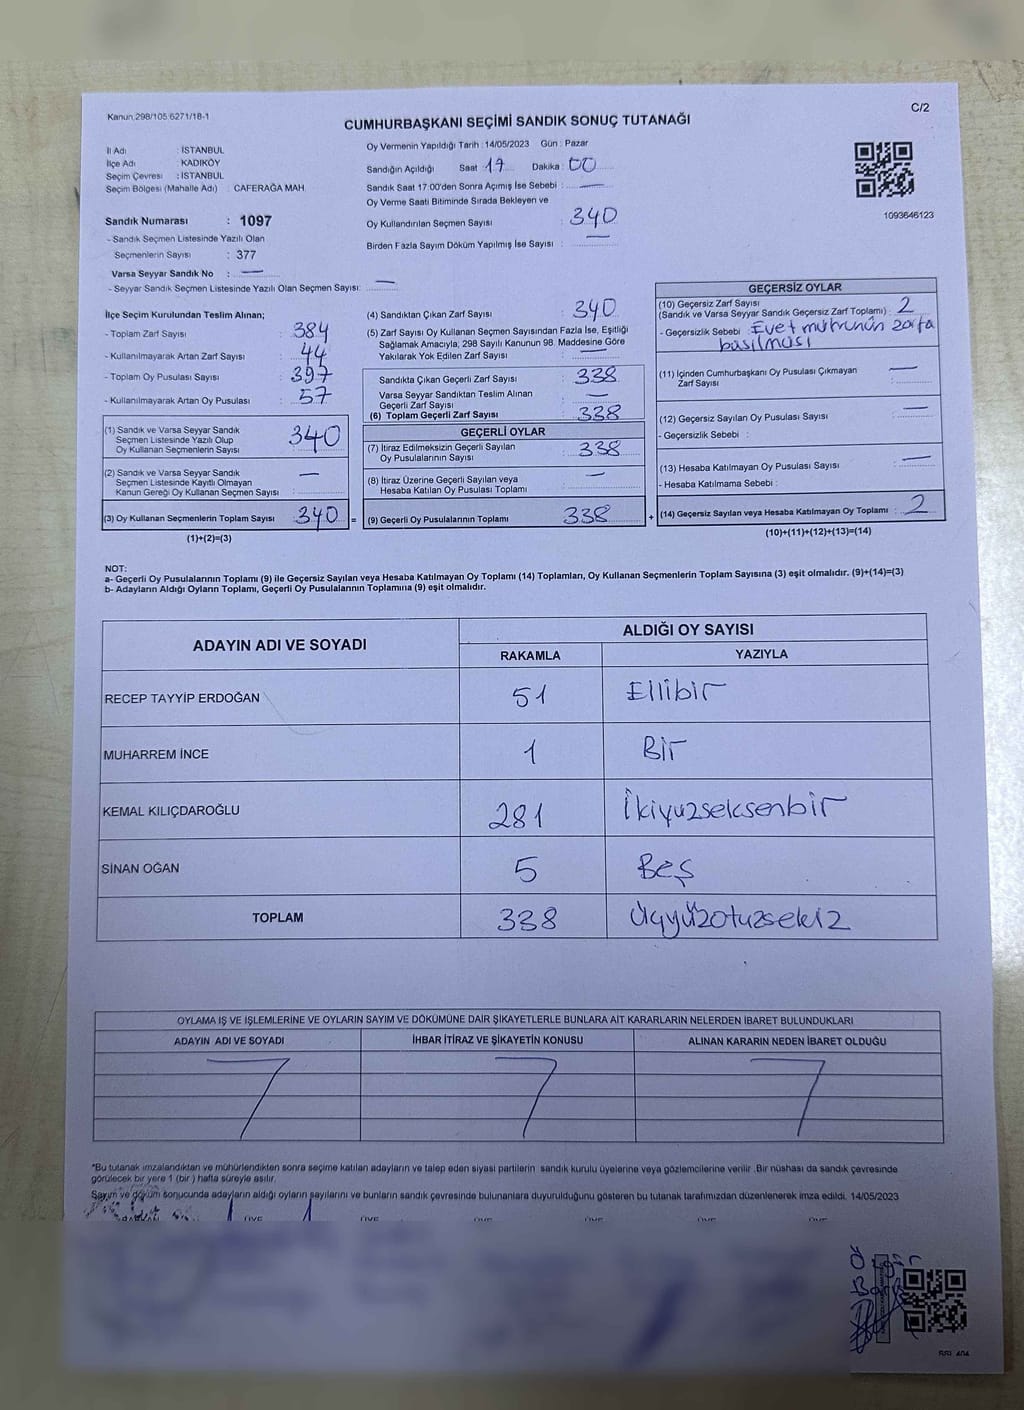 Kanun 298/105 6271/18-1
C/2
CUMHURBAŞKANI SEÇİMİ SANDIK SONUÇ TUTANAĞI
İl Adı : İSTANBUL
İlçe Adı : KADIKÖY
Seçim Çevresi : İSTANBUL
Seçim Bölgesi (Mahalle Adı) : CAFERAĞA MAH.
Sandık Numarası : 1097
- Sandık Seçmen Listesinde Yazılı Olan
Seçmenlerin Sayısı : 377
Varsa Seyyar Sandık No : —
- Seyyar Sandık Seçmen Listesinde Yazılı Olan Seçmen Sayısı: —
Oy Vermenin Yapıldığı Tarih : 14/05/2023 Gün : Pazar
Sandığın Açıldığı Saat 17 Dakika : 00
Sandık Saat 17:00'den Sonra Açımış İse Sebebi : —
Oy Verme Saati Bitiminde Sırada Bekleyen ve
Oy Kullandırılan Seçmen Sayısı : 340
Birden Fazla Sayım Döküm Yapılmış İse Sayısı : —
1093646123
İlçe Seçim Kurulundan Teslim Alınan;
- Toplam Zarf Sayısı : 384
- Kullanılmayarak Artan Zarf Sayısı : 44
- Toplam Oy Pusulası Sayısı : 397
- Kullanılmayarak Artan Oy Pusulası : 57
(1) Sandık ve Varsa Seyyar Sandık
Seçmen Listesinde Yazılı Olup
Oy Kullanan Seçmenlerin Sayısı : 340
(2) Sandık ve Varsa Seyyar Sandık
Seçmen Listesinde Kayıtlı Olmayan
Kanun Gereği Oy Kullanan Seçmen Sayısı : —
(3) Oy Kullanan Seçmenlerin Toplam Sayısı : 340
(1)+(2)=(3)
=
(4) Sandıktan Çıkan Zarf Sayısı : 340
(5) Zarf Sayısı Oy Kullanan Seçmen Sayısından Fazla İse, Eşitliği
Sağlamak Amacıyla, 298 Sayılı Kanunun 98. Maddesine Göre
Yakılarak Yok Edilen Zarf Sayısı : —
Sandıkta Çıkan Geçerli Zarf Sayısı : 338
Varsa Seyyar Sandıktan Teslim Alınan
Geçerli Zarf Sayısı : —
(6) Toplam Geçerli Zarf Sayısı : 338
GEÇERLİ OYLAR
(7) İtiraz Edilmeksizin Geçerli Sayılan
Oy Pusulalarının Sayısı : 338
(8) İtiraz Üzerine Geçerli Sayılan veya
Hesaba Katılan Oy Pusulası Toplamı : —
(9) Geçerli Oy Pusulalarının Toplamı : 338
+
GEÇERSİZ OYLAR
(10) Geçersiz Zarf Sayısı
(Sandık ve Varsa Seyyar Sandık Geçersiz Zarf Toplamı) : 2
- Geçersizlik Sebebi : Evet mührünün zarfa
basılması
(11) İçinden Cumhurbaşkanı Oy Pusulası Çıkmayan
Zarf Sayısı : —
(12) Geçersiz Sayılan Oy Pusulası Sayısı : —
- Geçersizlik Sebebi :
(13) Hesaba Katılmayan Oy Pusulası Sayısı : —
- Hesaba Katılmama Sebebi :
(14) Geçersiz Sayılan veya Hesaba Katılmayan Oy Toplamı : 2
(10)+(11)+(12)+(13)=(14)
NOT:
a- Geçerli Oy Pusulalarının Toplamı (9) ile Geçersiz Sayılan veya Hesaba Katılmayan Oy Toplamı (14) Toplamları, Oy Kullanan Seçmenlerin Toplam Sayısına (3) eşit olmalıdır. (9)+(14)=(3)
b- Adayların Aldığı Oyların Toplamı, Geçerli Oy Pusulalarının Toplamına (9) eşit olmalıdır.
ADAYIN ADI VE SOYADI
ALDIĞI OY SAYISI
RAKAMLA YAZIYLA
RECEP TAYYİP ERDOĞAN 51 Ellibir
MUHARREM İNCE 1 Bir
KEMAL KILIÇDAROĞLU 281 İkiyuzseksenbir
SİNAN OĞAN 5 Beş
TOPLAM 338 Üçyüzotuzsekiz
OYLAMA İŞ VE İŞLEMLERİNE VE OYLARIN SAYIM VE DÖKÜMÜNE DAİR ŞİKAYETLERLE BUNLARA AİT KARARLARIN NELERDEN İBARET BULUNDUKLARI
ADAYIN ADI VE SOYADI İHBAR İTİRAZ VE ŞİKAYETİN KONUSU ALINAN KARARIN NEDEN İBARET OLDUĞU
*Bu tutanak imzalandıktan ve mühürlendikten sonra seçime katılan adayların ve talep eden siyasi partilerin sandık kurulu üyelerine veya gözlemcilerine verilir .Bir nüshası da sandık çevresinde
görülecek bir yere 1 (bir ) hafta süreyle asılır.
Sayım ve döküm sonucunda adayların aldığı oyların sayılarını ve bunların sandık çevresinde bulunanlara duyurulduğunu gösteren bu tutanak tarafımızdan düzenlenerek imza edildi. 14/05/2023
ÜYE ÜYE ÜYE ÜYE ÜYE ÜYE